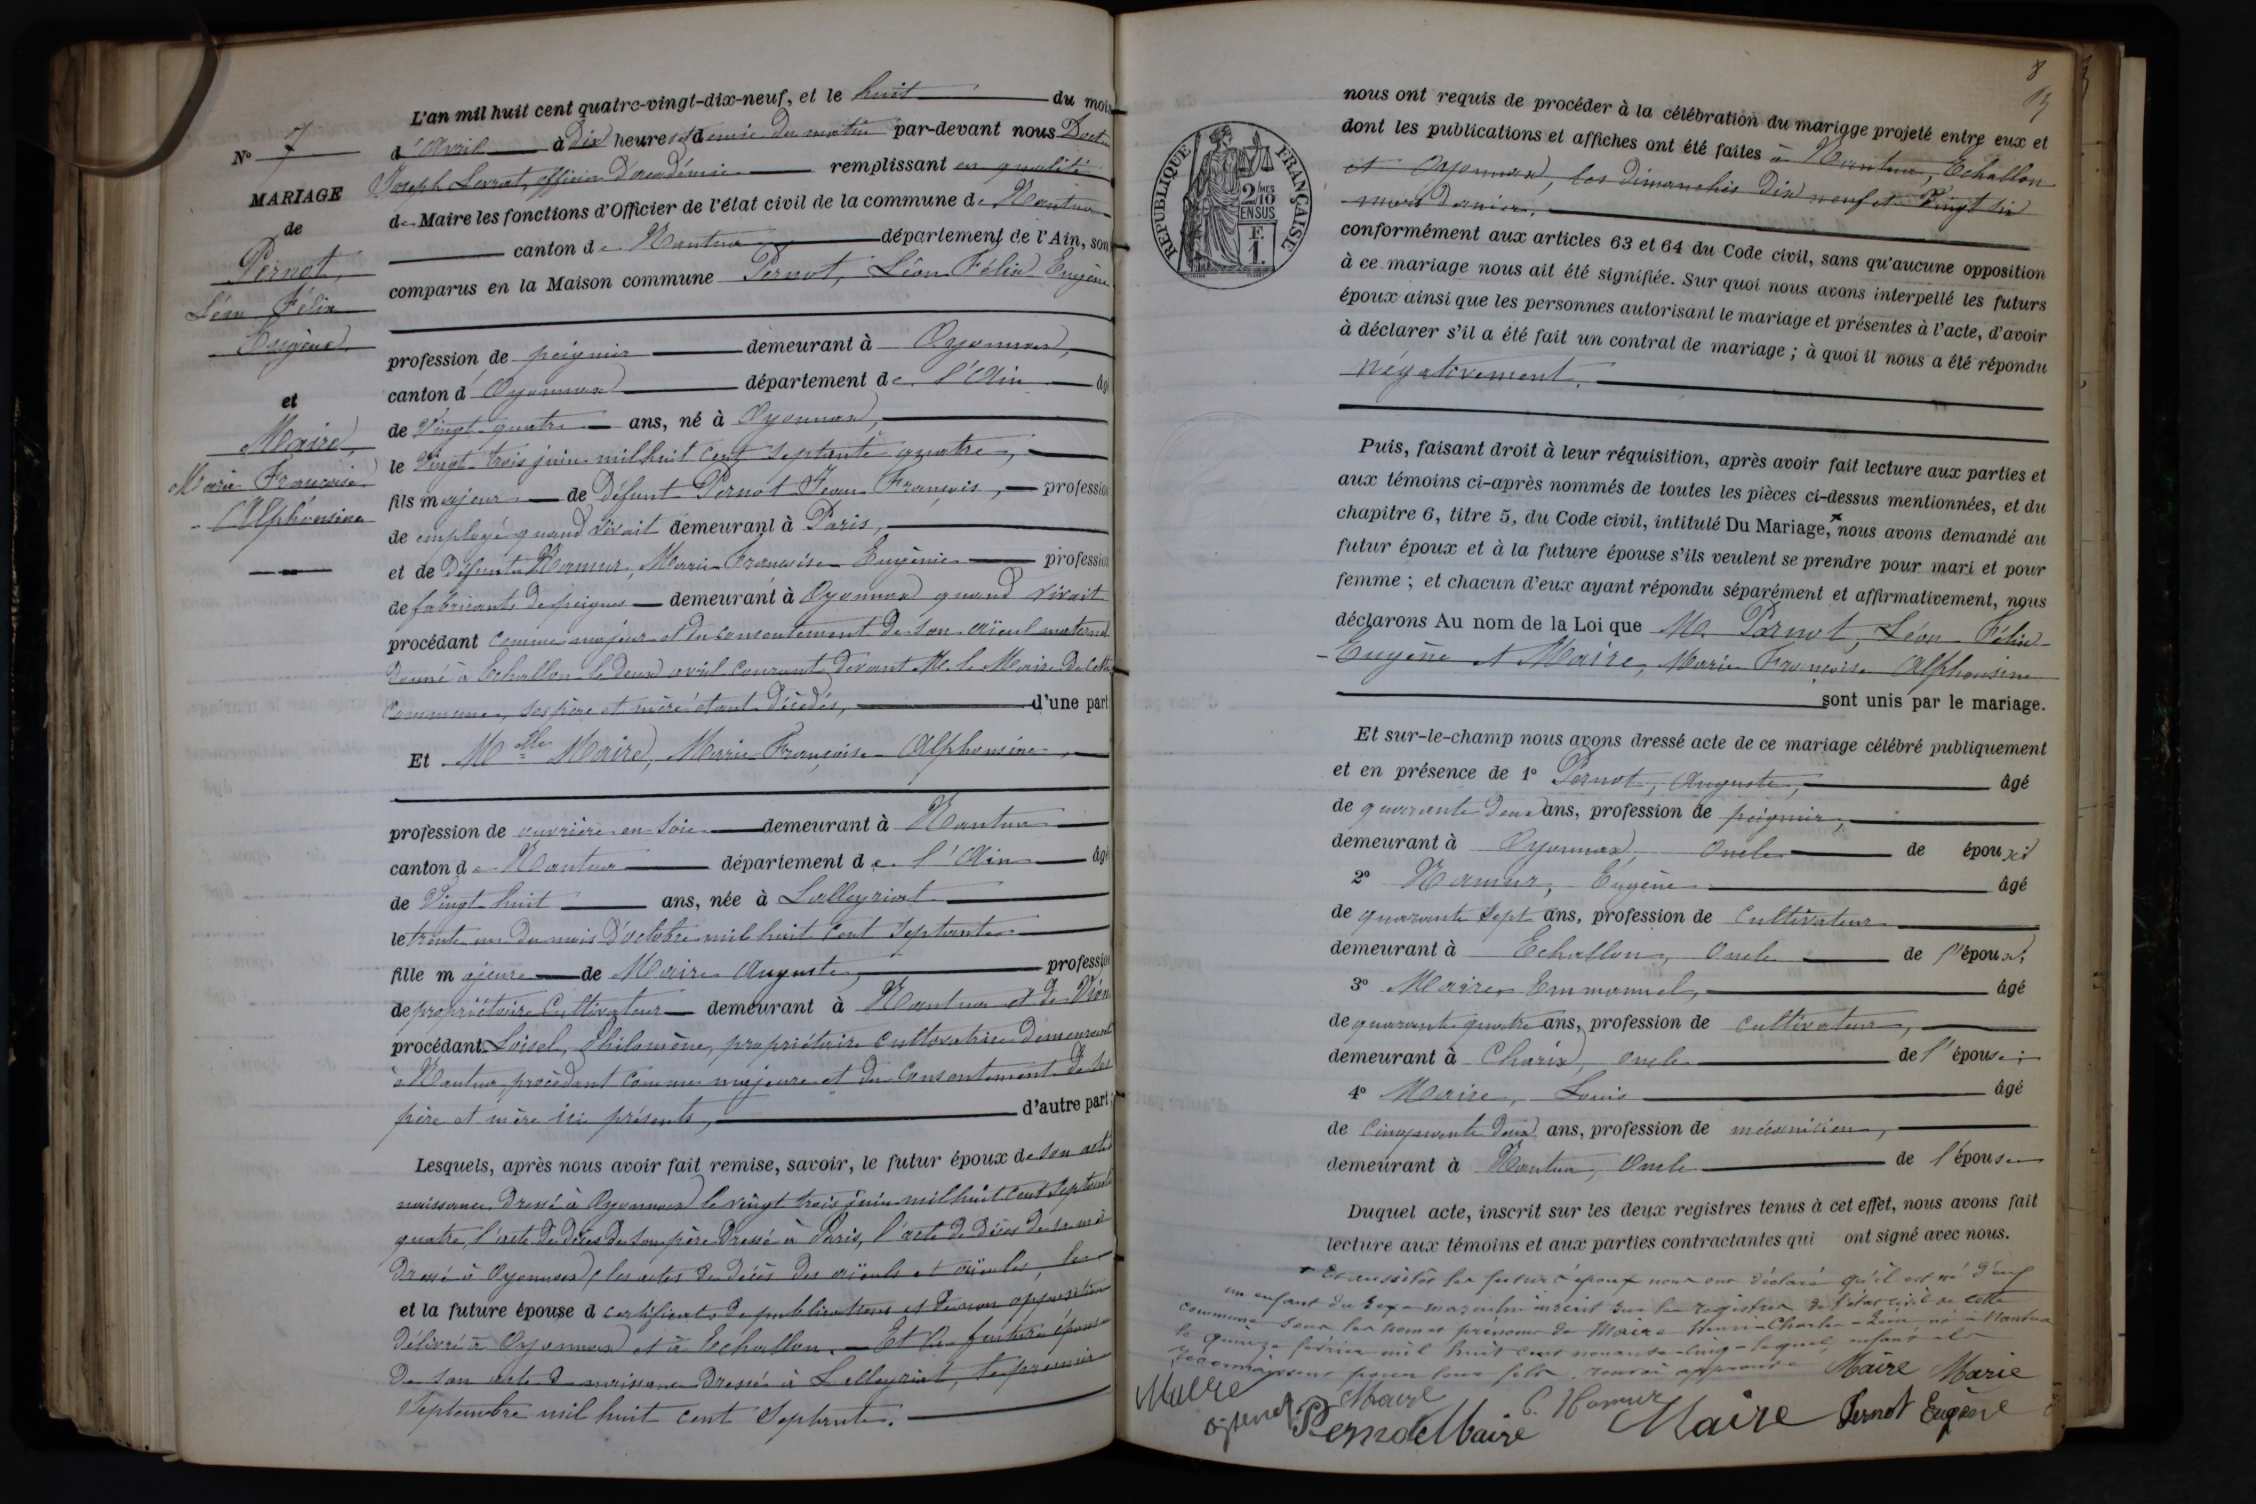 N° 7
MARIAGE
de
Pernot,
Léon Félix
Eugène
et
Maire,
Marie Françoise
Alphonsine
L'an mil huit cent quatre-vingt-dix-neuf, et le huit du mois
d'Avril à dix heures et demie du matin par-devant nous
Joseph officier d'académie remplissant en qualité
de Maire les fonctions d'Officier de l'état civil de la commune de Nantua
canton de Nantua département de l'Ain, son
comparus en la Maison commune Pernot, Léon Félix Eugène
profession de peignier demeurant à Oyonnax,
canton d'Oyonnax département de l'Ain âgé
de Vingt quatre ans, né à Oyonnax,
le Vingt trois juin mil huit cent septante quatre,
fils majeur de défunt Pernot Jean François, profession
de employé quand vivait demeurant à Paris,
et de défunte Hamur, Marie Françoise Eugénie profession
de fabricante de peignes demeurant à Oyonnax quand vivait
procédant comme majeur et du consentement de son aïeul maternel
donné à Echallon le deux avril courant devant M. le Maire de cette
commune, ses père et mère étant décédés, d'une part
Et Mlle Maire, Marie Françoise Alphonsine,
profession de ouvrière en soie demeurant à Nantua
canton de Nantua département de l'Ain âgé
de Vingt huit ans, née à Lalleyriat
le trente un du mois d'octobre mil huit cent septante
fille majeure de Maire Auguste, profession
de propriétaire cultivateur demeurant à Nantua et de
procédant Loisel, Philomène, propriétaire cultivatrice demeurant
à Nantua, procédant comme majeure et du consentement de ses
père et mère ici présents, d'autre part;
Lesquels, après nous avoir fait remise, savoir, le futur époux de son acte
naissance dressé à Oyonnax le vingt trois juin mil huit cent septante
quatre, l'acte de décès de son père dressé à Paris, l'acte de décès de sa mè
dressé à Oyonnax, les actes de décès des aïeuls et aïeules, les
et la future épouse d certificats de publications et de non opposition
délivré à Oyonnax et à Echallon. Et la future épouse
de son acte de naissance dressé à Lalleyriat, le premier
Septembre mil huit cent septante.
8
RÉPUBLIQUE FRANÇAISE
2/10 EN SUS
F. 1.
nous ont requis de procéder à la célébration du mariage projeté entre eux et
dont les publications et affiches ont été faites à Nantua, Echallon
et Oyonnax, les dimanches dix neuf et Vingt six
mars dernier,
conformément aux articles 63 et 64 du Code civil, sans qu'aucune opposition
à ce mariage nous ait été signifiée. Sur quoi nous avons interpellé les futurs
époux ainsi que les personnes autorisant le mariage et présentes à l'acte, d'avoir
à déclarer s'il a été fait un contrat de mariage ; à quoi il nous a été répondu
négativement.
Puis, faisant droit à leur réquisition, après avoir fait lecture aux parties et
aux témoins ci-après nommés de toutes les pièces ci-dessus mentionnées, et du
chapitre 6, titre 5, du Code civil, intitulé Du Mariage, nous avons demandé au
futur époux et à la future épouse s'ils veulent se prendre pour mari et pour
femme ; et chacun d'eux ayant répondu séparément et affirmativement, nous
déclarons Au nom de la Loi que M. Pernot, Léon Félix
Eugène et Maire, Marie Françoise Alphonsine
sont unis par le mariage.
Et sur-le-champ nous avons dressé acte de ce mariage célébré publiquement
et en présence de 1° Pernot, Auguste, âgé
de quarante deux ans, profession de peignier,
demeurant à Oyonnax, oncle de époux;
2° Hamur, Eugène âgé
de quarante sept ans, profession de cultivateur
demeurant à Echallon, oncle de l'époux;
3° Maire, Emmanuel, âgé
de quarante quatre ans, profession de cultivateur,
demeurant à Charix, oncle de l'épouse;
4° Maire, Louis âgé
de cinquante deux ans, profession de mécanicien,
demeurant à Nantua, oncle de l'épouse
Duquel acte, inscrit sur les deux registres tenus à cet effet, nous avons fait
lecture aux témoins et aux parties contractantes qui ont signé avec nous.
+ Et aussitôt les futurs époux nous ont déclaré qu'il est né d'eux
un enfant du sexe masculin inscrit sur les registres de l'état civil de cette
commune sous les noms et prénoms de Maire Henri Charles Léon, né à Nantua
le quinze février mil huit cent nonante-cinq lequel enfant ils
reconnaissent pour leur fils. renvoi approuvé Maire Marie
Maire Maire E. Hamur
Pernot Maire Maire Pernot Eugène